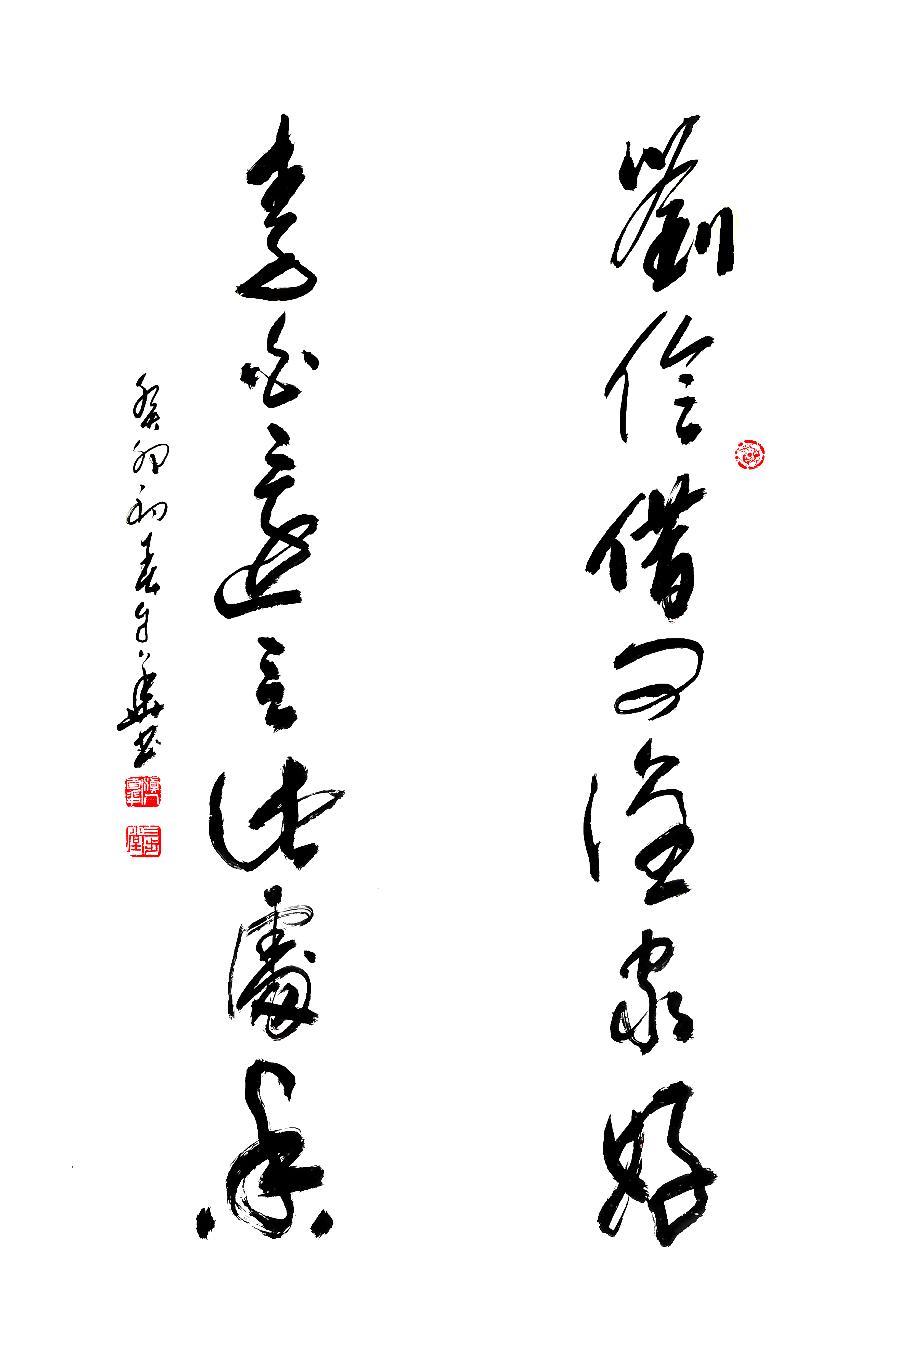 劉伶借問誰家好
李白還言此處香
癸卯初春 華書